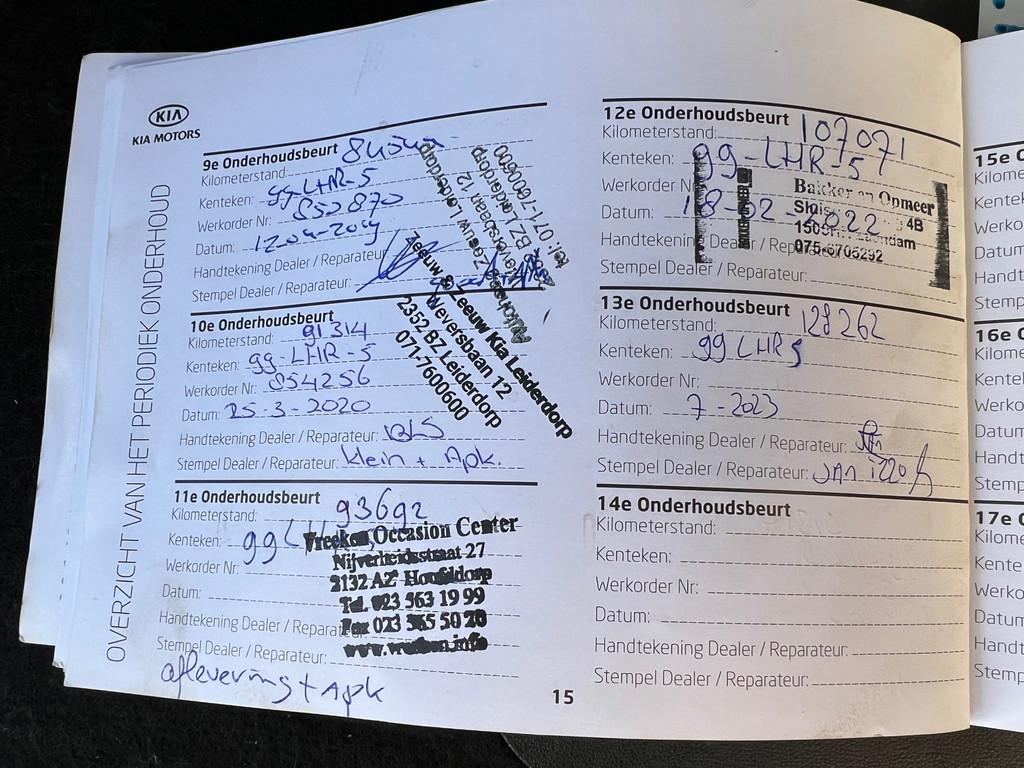 KIA
KIA MOTORS
OVERZICHT VAN HET PERIODIEK ONDERHOUD
9e Onderhoudsbeurt
Kilometerstand:
Kenteken: gg LHR-5
Werkorder Nr: 852870
Datum:
Handtekening Dealer / Reparateur
Stempel Dealer / Reparateur:
Weversbaan 12
BZ Leiderdorp
tel: 071-7600600
10e Onderhoudsbeurt
Kilometerstand: 91314
Kenteken: gg-LHR-5
Werkorder Nr: 854256
Datum: 25-3-2020
Handtekening Dealer / Reparateur:
Stempel Dealer / Reparateur: klein + Apk.
Zeeuw & Leeuw Kia Leiderdorp
Weversbaan 12
2352 BZ Leiderdorp
071-7600600
11e Onderhoudsbeurt
Kilometerstand: 93692
Kenteken: gg
Werkorder Nr:
Datum:
Handtekening Dealer / Reparateur
Stempel Dealer / Reparateur:
aflevering + Apk
Vreeken Occasion Center
Nijverheidsstraat 27
2132 AZ Hoofddorp
Tel. 023 563 19 99
Fax 023 565 50 20
15
12e Onderhoudsbeurt
Kilometerstand: 107071
Kenteken: gg-LHR-5
Werkorder
Datum: 18-02-2022
Handtekening Dealer / Reparateur
Stempel Dealer / Reparateur:
Bakker en Opmeer
4B
075-6705292
13e Onderhoudsbeurt
Kilometerstand: 128262
Kenteken: gg LHR 5
Werkorder Nr:
Datum: 7-2023
Handtekening Dealer / Reparateur:
Stempel Dealer / Reparateur:
14e Onderhoudsbeurt
Kilometerstand:
Kenteken:
Werkorder Nr:
Datum:
Handtekening Dealer / Reparateur:
Stempel Dealer / Reparateur:
15e On
Kilome
Kentek
Werko
Datum
Handt
Stemp
16e On
Kilome
Kentel
Werko
Datum
Handt
Stemp
17e O
Kilom
Kente
Werko
Datum
Handt
Stemp